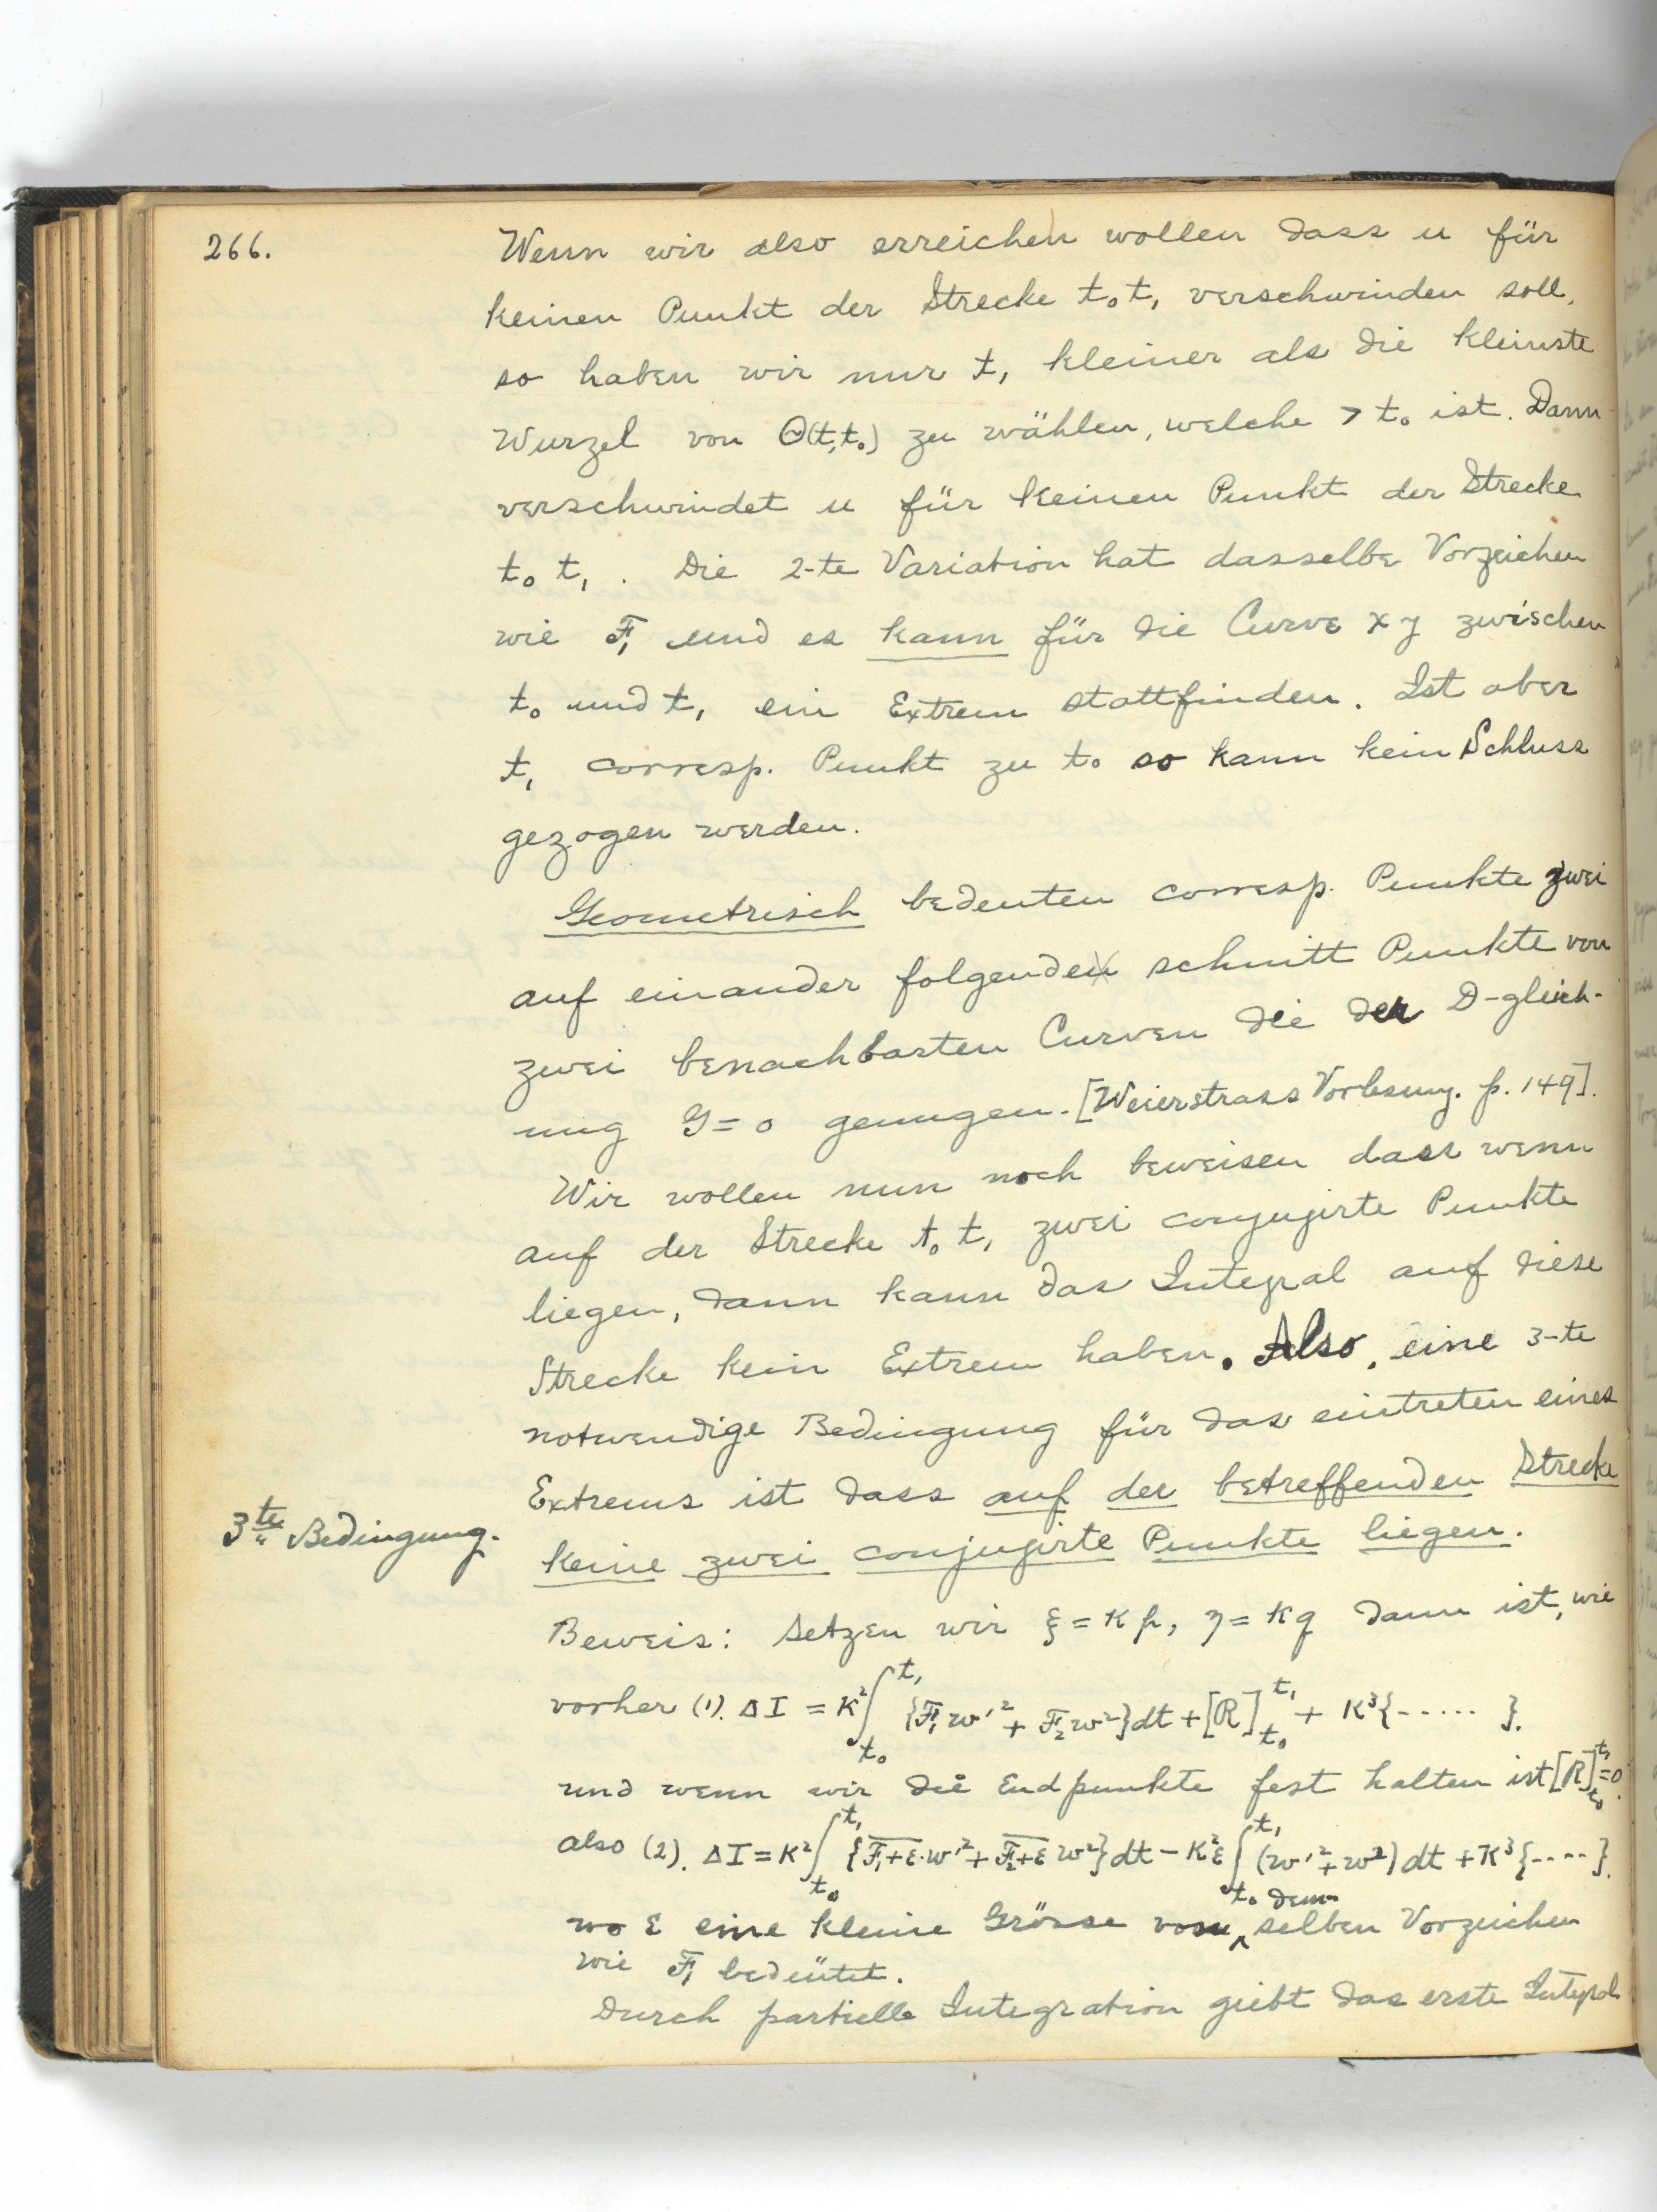 266.
Wenn wir also erreichen wollen dass u für
keinen Punkt der Strecke t₀t₁ verschwinden soll,
so haben wir nur t₁ kleiner als die kleinste
Wurzel von Θ(t,t₀) zu wählen, welche > t₀ ist. Dann
verschwindet u für keinen Punkt der Strecke
t₀ t₁ . Die 2-te Variation hat dasselbe Vorzeichen
wie F₁ und es kann für die Curve x y zwischen
t₀ und t₁ ein Extrem stattfinden. Ist aber
t₁ corresp. Punkt zu t₀ so kann kein Schluss
gezogen werden.
Geometrisch bedeuten corresp. Punkte zwei
auf einander folgende schnitt Punkte von
zwei benachbarten Curven die der D-gleich-
ung G=0 genugen. [Weierstrass Vorlesung. p. 149].
Wir wollen nun noch beweisen dass wenn
auf der Strecke t₀ t₁ zwei conjugirte Punkte
liegen, dann kann das Integral auf diese
Strecke kein Extrem haben. Also, eine 3-te
notwendige Bedingung für das eintreten eines
Extrems ist dass auf der betreffenden Strecke
3te Bedingung.
keine zwei conjugirte Punkte liegen.
Beweis: Setzen wir ξ = κp, η = κq dann ist, wie
vorher (1). ΔI = κ²∫_{t₀}^{t₁} {F₁w'² + F₂w²}dt + [R]_{t₀}^{t₁} + κ³{----- }.
und wenn wir die Endpunkte fest halten ist [R]_{t₀}^{t₁}=0.
also (2). ΔI = κ²∫_{t₀}^{t₁} {\overline{F₁+ε}·w'² + \overline{F₂+ε} w²}dt − κ²ε∫_{t₀}^{t₁} (w'²+w²)dt + κ³{----}.
wo ε eine kleine Grösse von dem-selben Vorzeichen
wie F₁ bedeutet.
Durch partielle Integration giebt das erste Integral